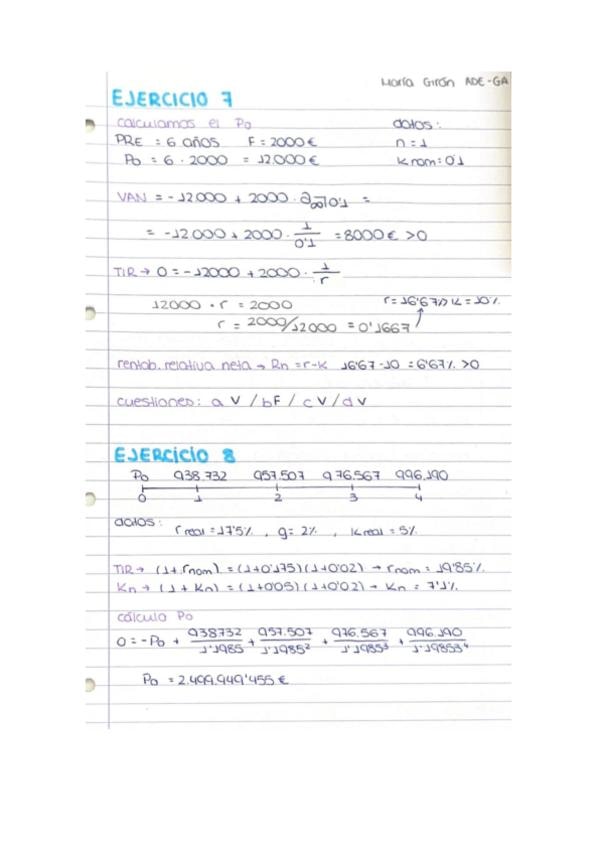 María Girón ADE-GA
EJERCICIO 7
calculamos el Po datos:
PRE = 6 años F = 2000€ n = 1
Po = 6 · 2000 = 12000€ K nom = 0'1
VAN = -12000 + 2000 · a∞¬0'1 =
= -12000 + 2000 · 1/0'1 = 8000€ >0
TIR → 0 = -12000 + 2000 · 1/r
12000 · r = 2000 r = 16'67% > K = 10%
r = 2000/12000 = 0'1667
rentab. relativa neta → Rn = r-K 16'67-10 = 6'67% >0
cuestiones: a V / b F / c V / d V
EJERCICIO 8
Po 938.732 957.507 976.567 996.190
0 1 2 3 4
datos: r real = 17'5% , g = 2% , K real = 5%
TIR → (1+ rnom) = (1+0'175)(1+0'02) → rnom = 19'85%
Kn → (1 + Kn) = (1+0'05)(1+0'02) → Kn = 7'1%
cálculo Po
0 = -Po + 938732/1'1985 + 957.507/1'1985² + 976.567/1'1985³ + 996.190/1'19853⁴
Po = 2.499.949'455 €